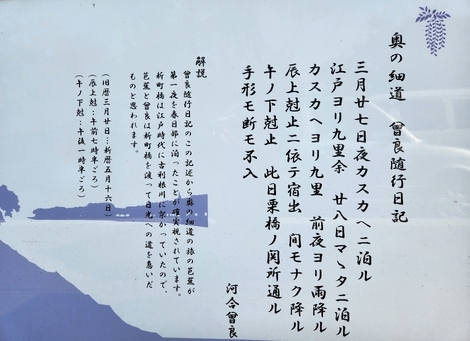 奥の細道　曾良随行日記
三月廿七日夜カスカヘニ泊ル
江戸ヨリ九里余　廿八日マヽタニ泊ル
カスカヘヨリ九里　前夜ヨリ雨降ル
辰上尅止ニ依テ宿出　間モナク降ル
午ノ下尅止　此日栗橋ノ関所通ル
手形モ断モ不入
河合曾良
解説
曾良随行日記のこの記述から奥の細道の旅の芭蕉が
第一夜を春日部に泊ったことが確実視されています。
新町橋は江戸時代に古利根川に架かっていたので、
芭蕉と曾良は新町橋を渡って日光への道を急いだ
ものと思われます。
（旧暦三月廿日：新暦五月十六日）
（辰上尅：午前七時半ごろ）
（午ノ下尅：午後一時半ごろ）